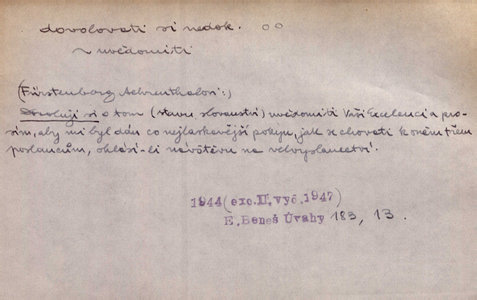 dovolovati si nedok. oo
~ uvědomiti
(Fürstenberg Aehrenthalovi:)
Dovoluji si o tom (stavu slovanství) uvědomiti Vaši Excelenci a pro-
sím, aby mi byl dán co nejlaskavější pokyn, jak se chovati k oněm třem
poslancům, ohlásí-li návštěvu na velvyslanectví.
1944 (exc. II. vyd. 1947)
E. Beneš Úvahy 183, 13.